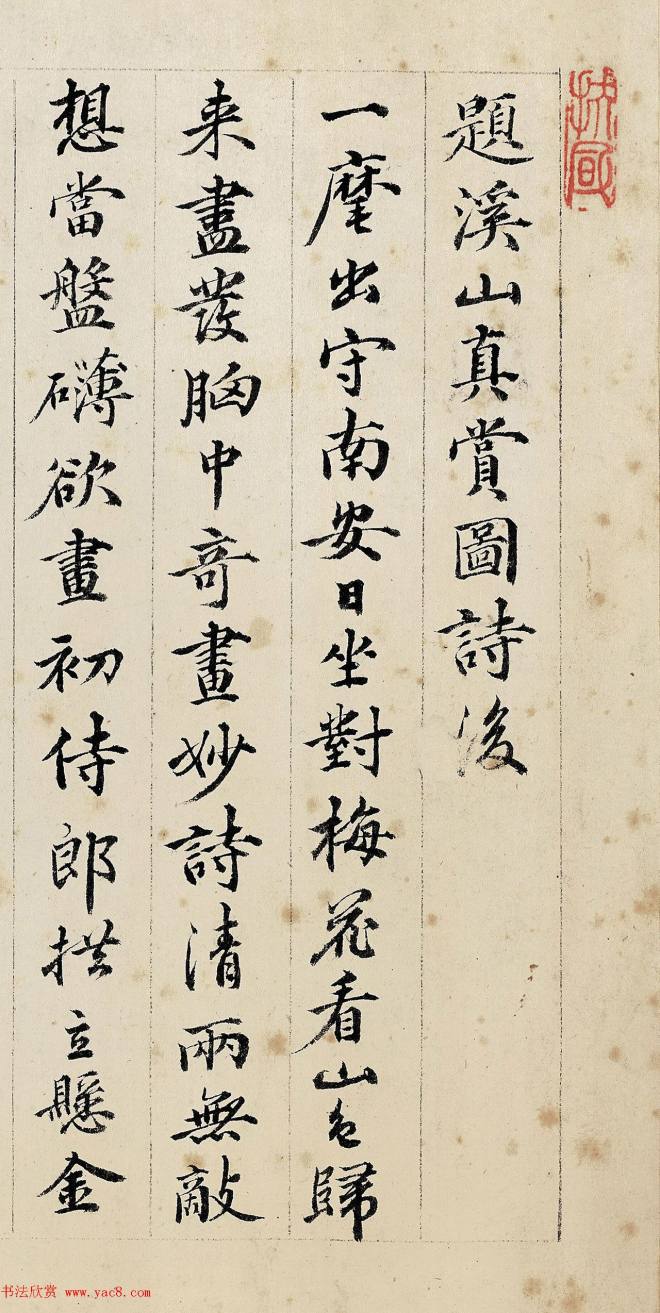 題溪山真賞圖詩後
一麾出守南安日坐對梅花看山色歸
来盡發胸中奇畫妙詩清兩無敵
想當盤礴欲畫初侍郎拱立懸金
书法欣赏 www.yac8.com